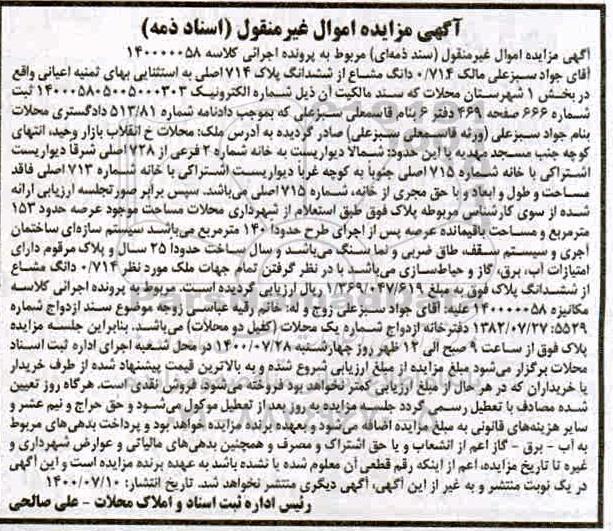 آگهی مزایده اموال غیرمنقول (اسناد ذمه)
آگهی مزایده اموال غیرمنقول (سند ذمه‌ای) مربوط به پرونده اجرائی کلاسه ۱۴۰۰۰۰۰۵۸
آقای جواد سبزعلی مالک ۰/۷۱۴ دانگ مشاع از ششدانگ پلاک ۷۱۴ اصلی به استثنایی بهای ثمنیه اعیانی واقع
در بخش ۱ شهرستان محلات که سند مالکیت آن ذیل شماره الکترونیک ۱۴۰۰۰۵۸۰۵۰۰۵۰۰۰۳۰۳ ثبت
شماره ۶۶۶ صفحه ۴۶۹ دفتر ۶ بنام قاسمعلی سبزعلی که بموجب دادنامه شماره ۵۱۳/۸۱ دادگستری محلات
بنام جواد سبزعلی (ورثه قاسمعلی سبزعلی) صادر گردیده به آدرس ملک: محلات خ انقلاب بازار وحید، انتهای
کوچه جنب مسجد مهدیه با این حدود: شمالا دیواریست به خانه شماره ۲ فرعی از ۷۲۸ اصلی شرقا دیواریست
اشتراکی با خانه شماره ۷۱۵ اصلی جنوبا به کوچه غربا دیواریست اشتراکی با خانه شماره ۷۱۳ اصلی فاقد
مساحت و طول و ابعاد و با حق مجری از خانه، شماره ۷۱۵ اصلی می‌باشد. سپس برابر صورتجلسه ارزیابی ارائه
شده از سوی کارشناس مربوطه پلاک فوق طبق استعلام از شهرداری محلات مساحت موجود عرصه حدود ۱۵۳
مترمربع و مساحت باقیمانده عرصه پس از اجرای طرح حدودا ۱۴۰ مترمربع می‌باشد سیستم سازه‌ای ساختمان
آجری و سیستم سقف، طاق ضربی و نما سنگ می‌باشد و سال ساخت حدودا ۲۵ سال و پلاک مرقوم دارای
امتیازات آب، برق، گاز و حیاط‌سازی می‌باشد با در نظر گرفتن تمام جهات ملک مورد نظر ۰/۷۱۴ دانگ مشاع
از ششدانگ پلاک فوق به مبلغ ۱/۳۶۹/۰۴۷/۶۱۹ ریال ارزیابی گردیده است. مربوط به پرونده اجرائی کلاسه
مکانیزه ۱۴۰۰۰۰۰۵۸ علیه: آقای جواد سبزعلی زوج و له: خانم رقیه عباسی زوجه موضوع سند ازدواج شماره
۵۵۲۹: ۱۳۸۲/۰۷/۲۷ دفترخانه ازدواج شماره یک محلات (کفیل دو محلات) می‌باشد. بنابراین جلسه مزایده
پلاک فوق از ساعت ۹ صبح الی ۱۲ ظهر روز چهارشنبه ۱۴۰۰/۰۷/۲۸ در محل شعبه اجرای اداره ثبت اسناد
محلات برگزار می‌شود مبلغ مزایده از مبلغ ارزیابی شروع شده و به بالاترین قیمت پیشنهاد شده از طرف خریدار
یا خریداران که در هر حال از مبلغ ارزیابی کمتر نخواهد بود فروخته می‌شود، فروش نقدی است. هرگاه روز تعیین
شده مصادف با تعطیل رسمی گردد جلسه مزایده به روز پس از تعطیل موکول می‌شود و حق حراج و نیم عشر و
سایر هزینه‌های قانونی به مبلغ مزایده اضافه می‌شود و بعهده برنده مزایده خواهد بود و پرداخت بدهی‌های مربوط
به آب - برق - گاز اعم از انشعاب و یا حق اشتراک و مصرف و همچنین بدهی‌های مالیاتی و عوارض شهرداری و
غیره تا تاریخ مزایده، اعم از اینکه رقم قطعی آن معلوم شده یا نشده باشد به عهده برنده مزایده است و این آگهی
در یک نوبت منتشر و به غیر از این آگهی، آگهی دیگری منتشر نخواهد شد. تاریخ انتشار: ۱۴۰۰/۰۷/۱۰
رئیس اداره ثبت اسناد و املاک محلات - علی صالحی